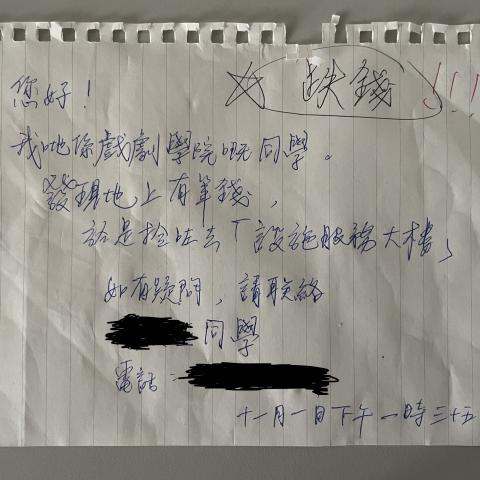 缺錢 !!!
您好！
我哋係戲劇學院嘅同學。
發現地上有筆錢，
於是拾咗去「設施服務大樓」
如有疑問，請联絡
同學
電話
十一月一日下午一時三十五